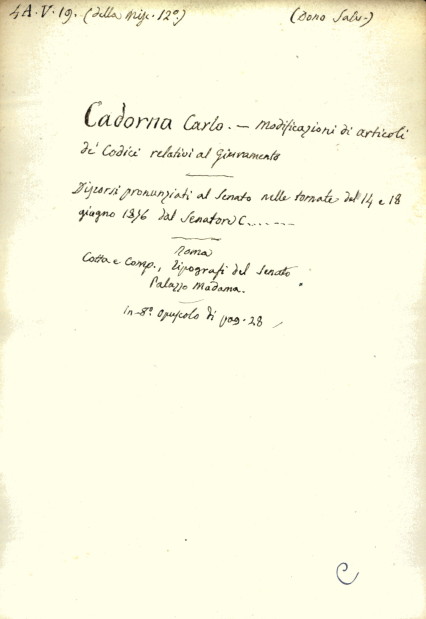 4A.V.19. (della Misc. 12º.) (Dono Salv.)
Cadorna Carlo. — Modificazioni di articoli
de' Codici relativi al Giuramento
Discorsi pronunziati al Senato nelle tornate del 14 e 18
giugno 1876 dal Senatore C.......
Roma
Cotta e Comp., Tipografi del Senato
Palazzo Madama.
in-8º. Opuscolo di pag. 28
C